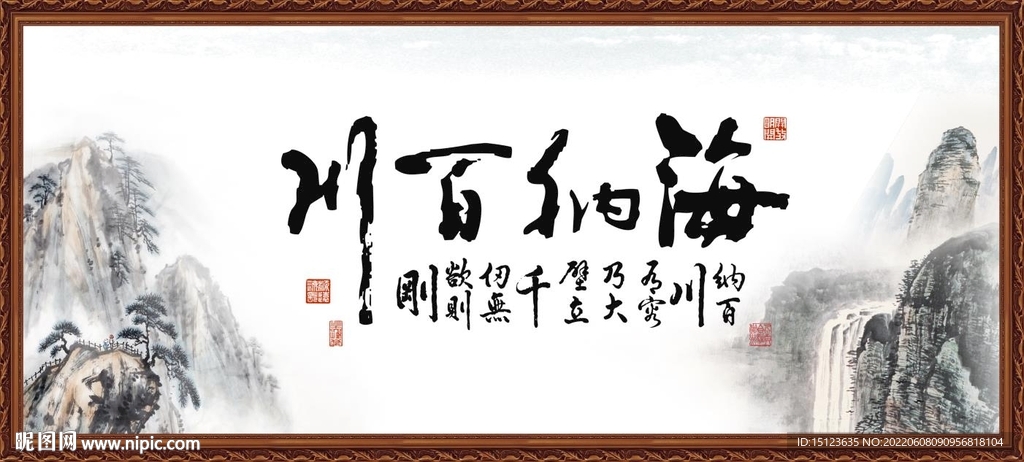 海納百川
納百川有容乃大壁立千仞無欲則剛
昵图网 www.nipic.com
ID:15123635 NO:20220608090956818104